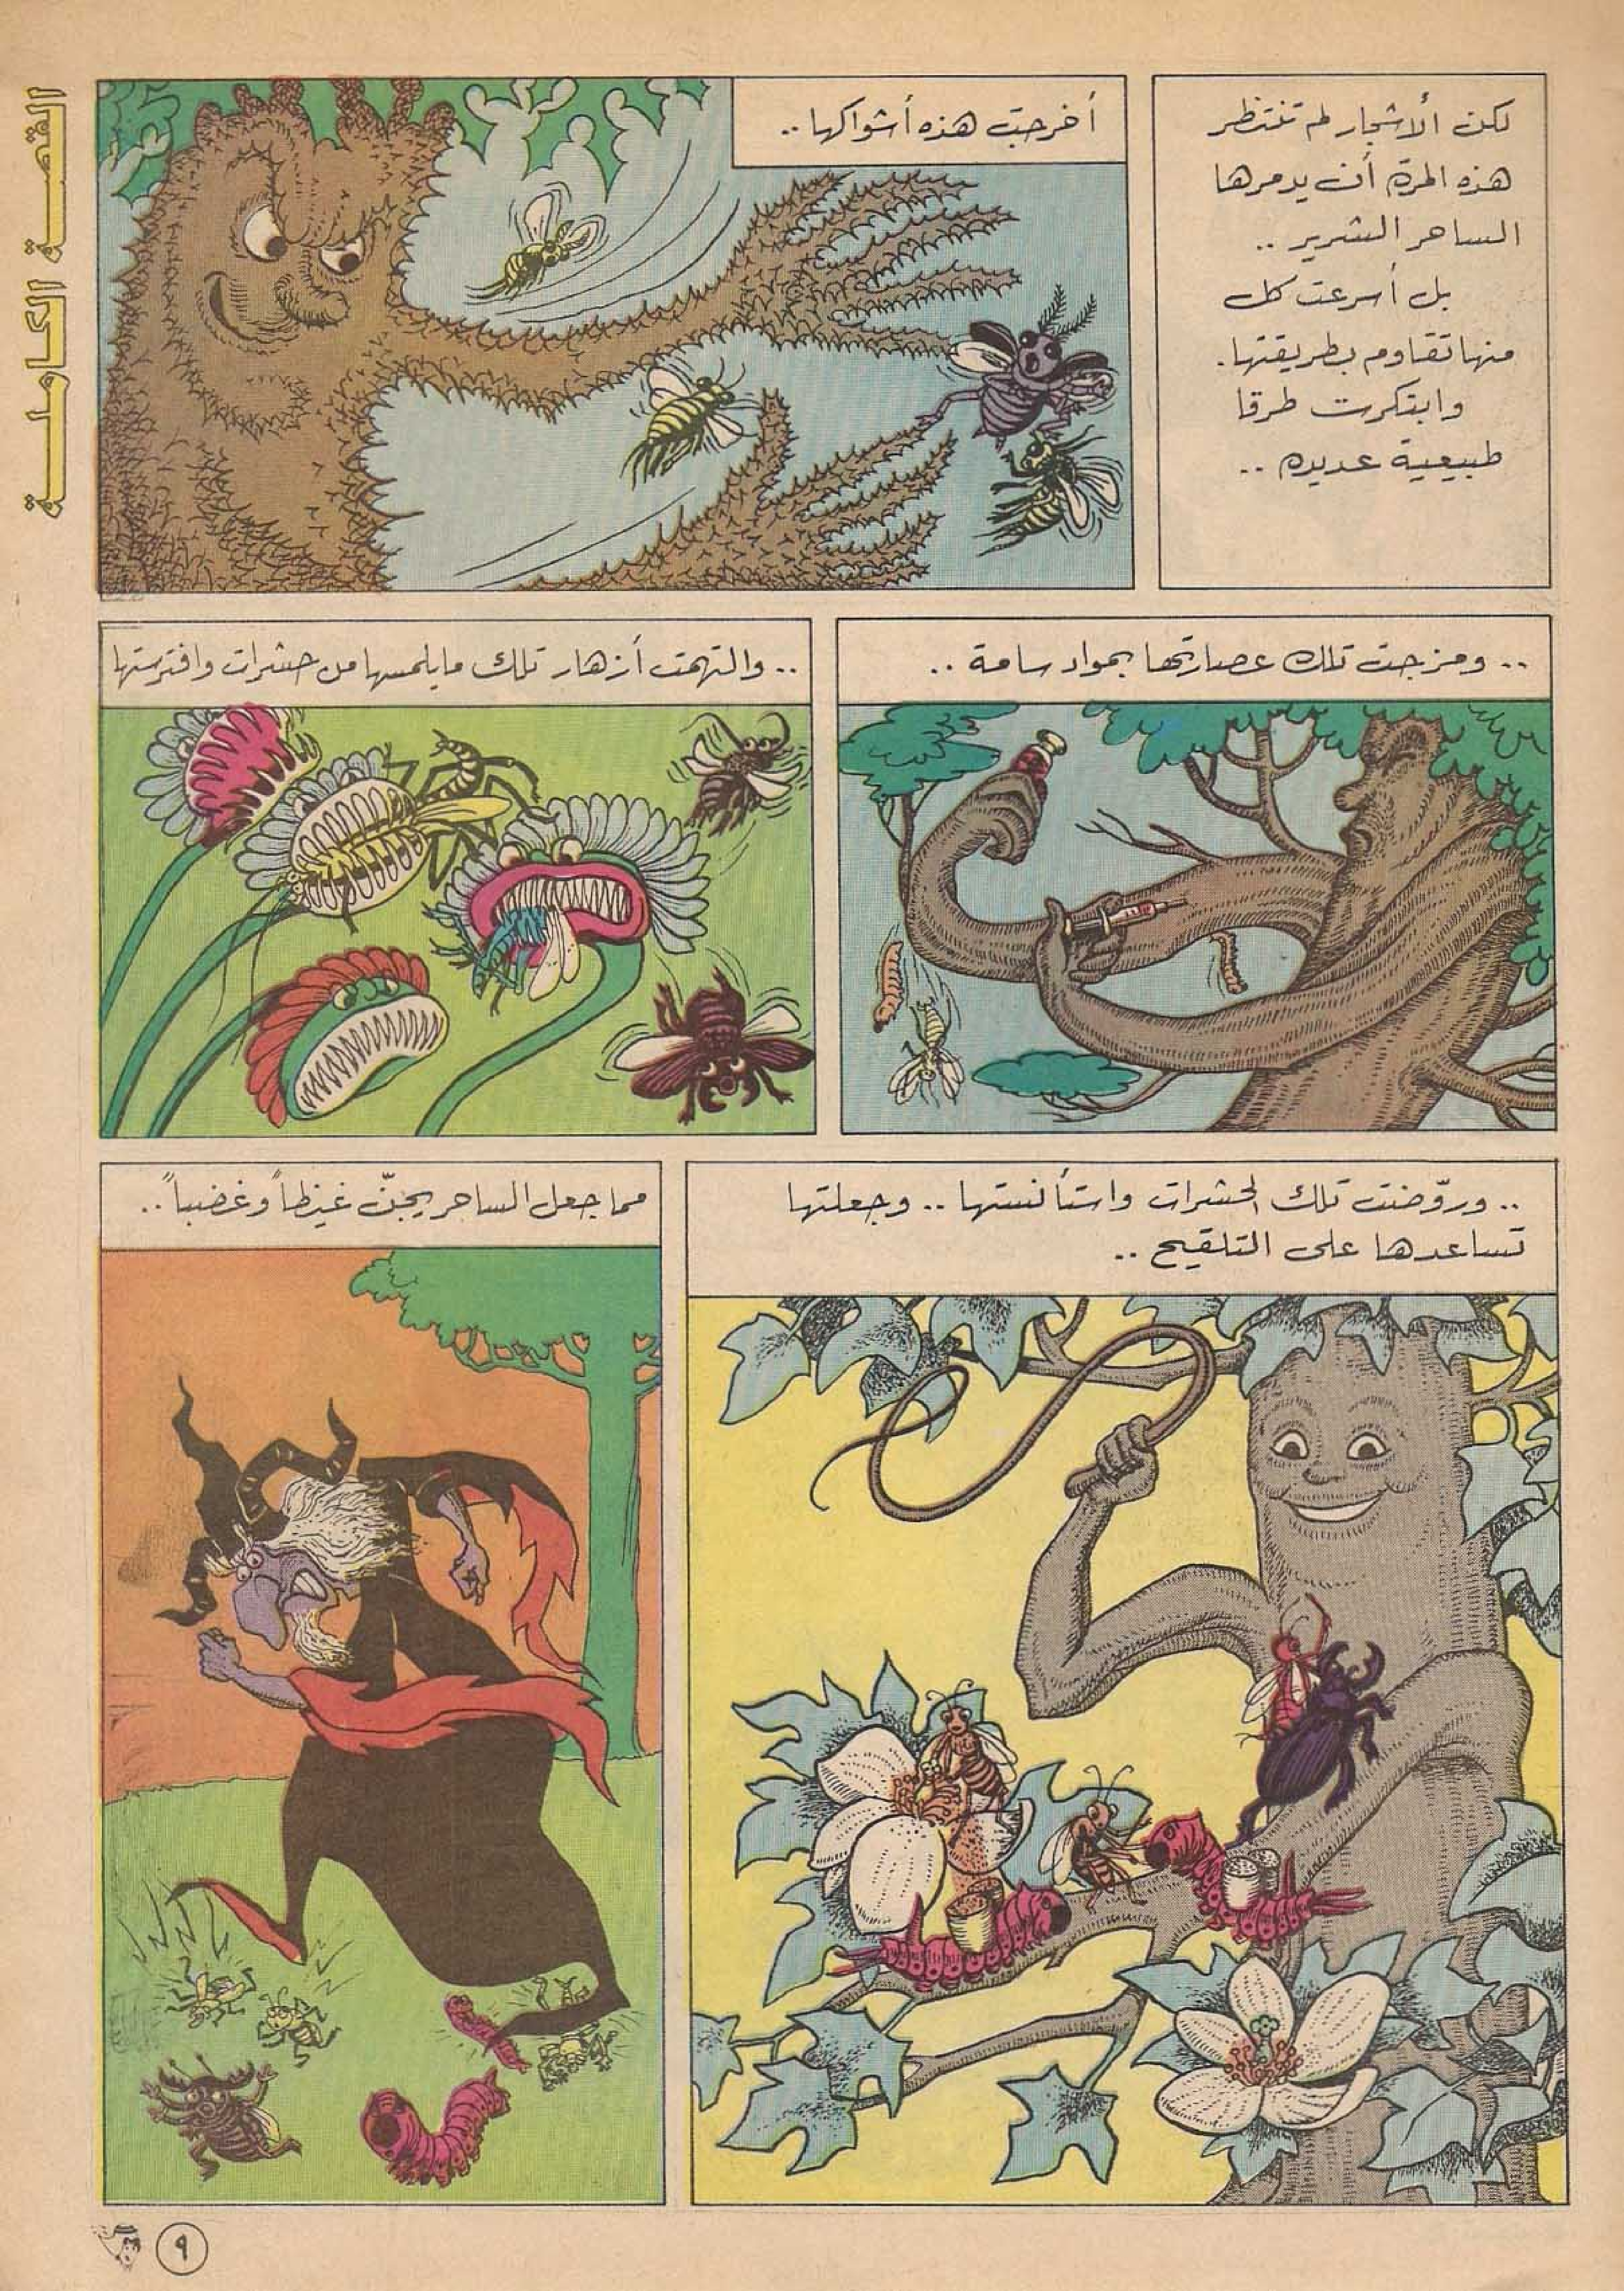 القصة الكاملة
لكن الأشجار لم تنتظر
هذه المرة أن يدمرها
الساحر الشرير ..
بل أسرعت كل
منها تقاوم بطريقتها.
وابتكرت طرقا
طبيعية عديده ..
أخرجت هذه أشواكها ..
.. ومزجت تلك عصارتها بمواد سامة ..
.. والتهمت أزهار تلك مايلمسها من حشرات وافترستها
.. وروّضت تلك الحشرات واستأنستها .. وجعلتها
تساعدها على التلقيح ..
مما جعل الساحر يجنّ غيظاً وغضباً ..
٩